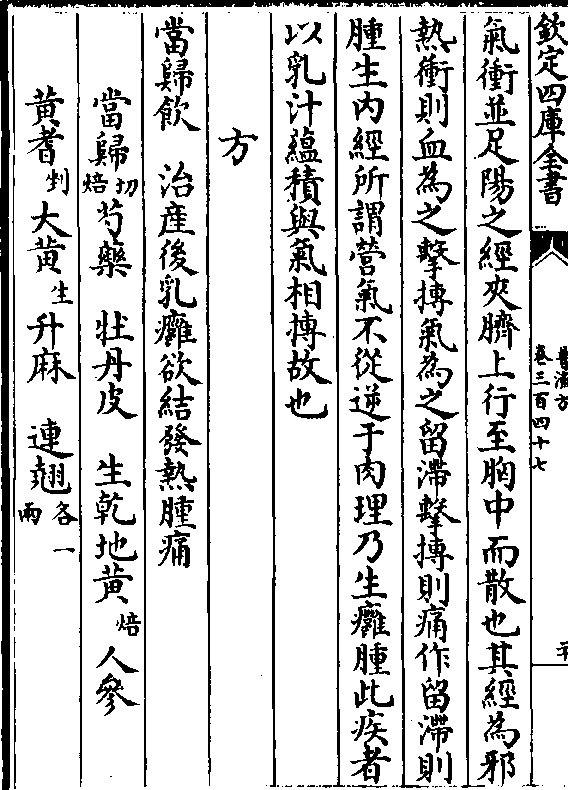 欽定四庫全書
普濟方
卷三百四十七
氣衝並足陽之經夾臍上行至胸中而散也其經為邪
熱衝則血為之擊搏氣為之留滯擊搏則痛作留滯則
腫生内經所謂營氣不從逆于肉理乃生癰腫此疾者
以乳汁藴積與氣相搏故也
方
當歸飲 治産後乳癰欲結發熱腫痛
當歸切焙 芍藥 牡丹皮 生乾地黄焙 人參
黄耆剉 大黄生 升麻 連翹各一兩